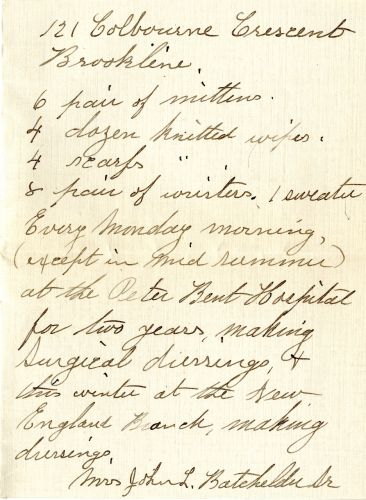 121 Colbourne Crescent
Brookline.
6 pair of mittens.
4 dozen knitted wipes.
4 scarfs " .
8 pair of wristers. 1 sweater
Every Monday morning,
(except in mid summer)
at the Peter Bent Hospital
for two years, making
Surgical dressings, &
this winter at the New
England Branch, making
dressings.
Mrs John L. Batchelder Jr